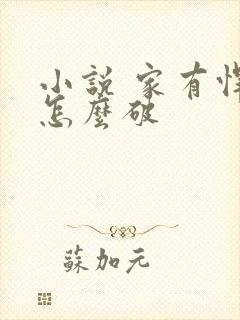 小說 家有悍
怎麼破
蘇加元